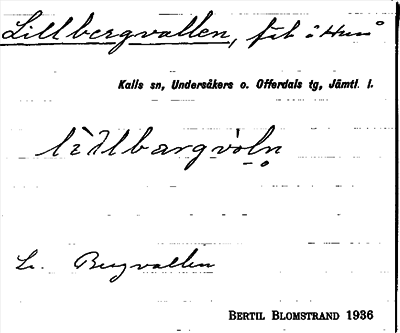 Lillbergvallen, fäb i Huså
Kalls sn, Undersåkers o. Offerdals tg, Jämtl. l.
Bergvallen
BERTIL BLOMSTRAND 1936